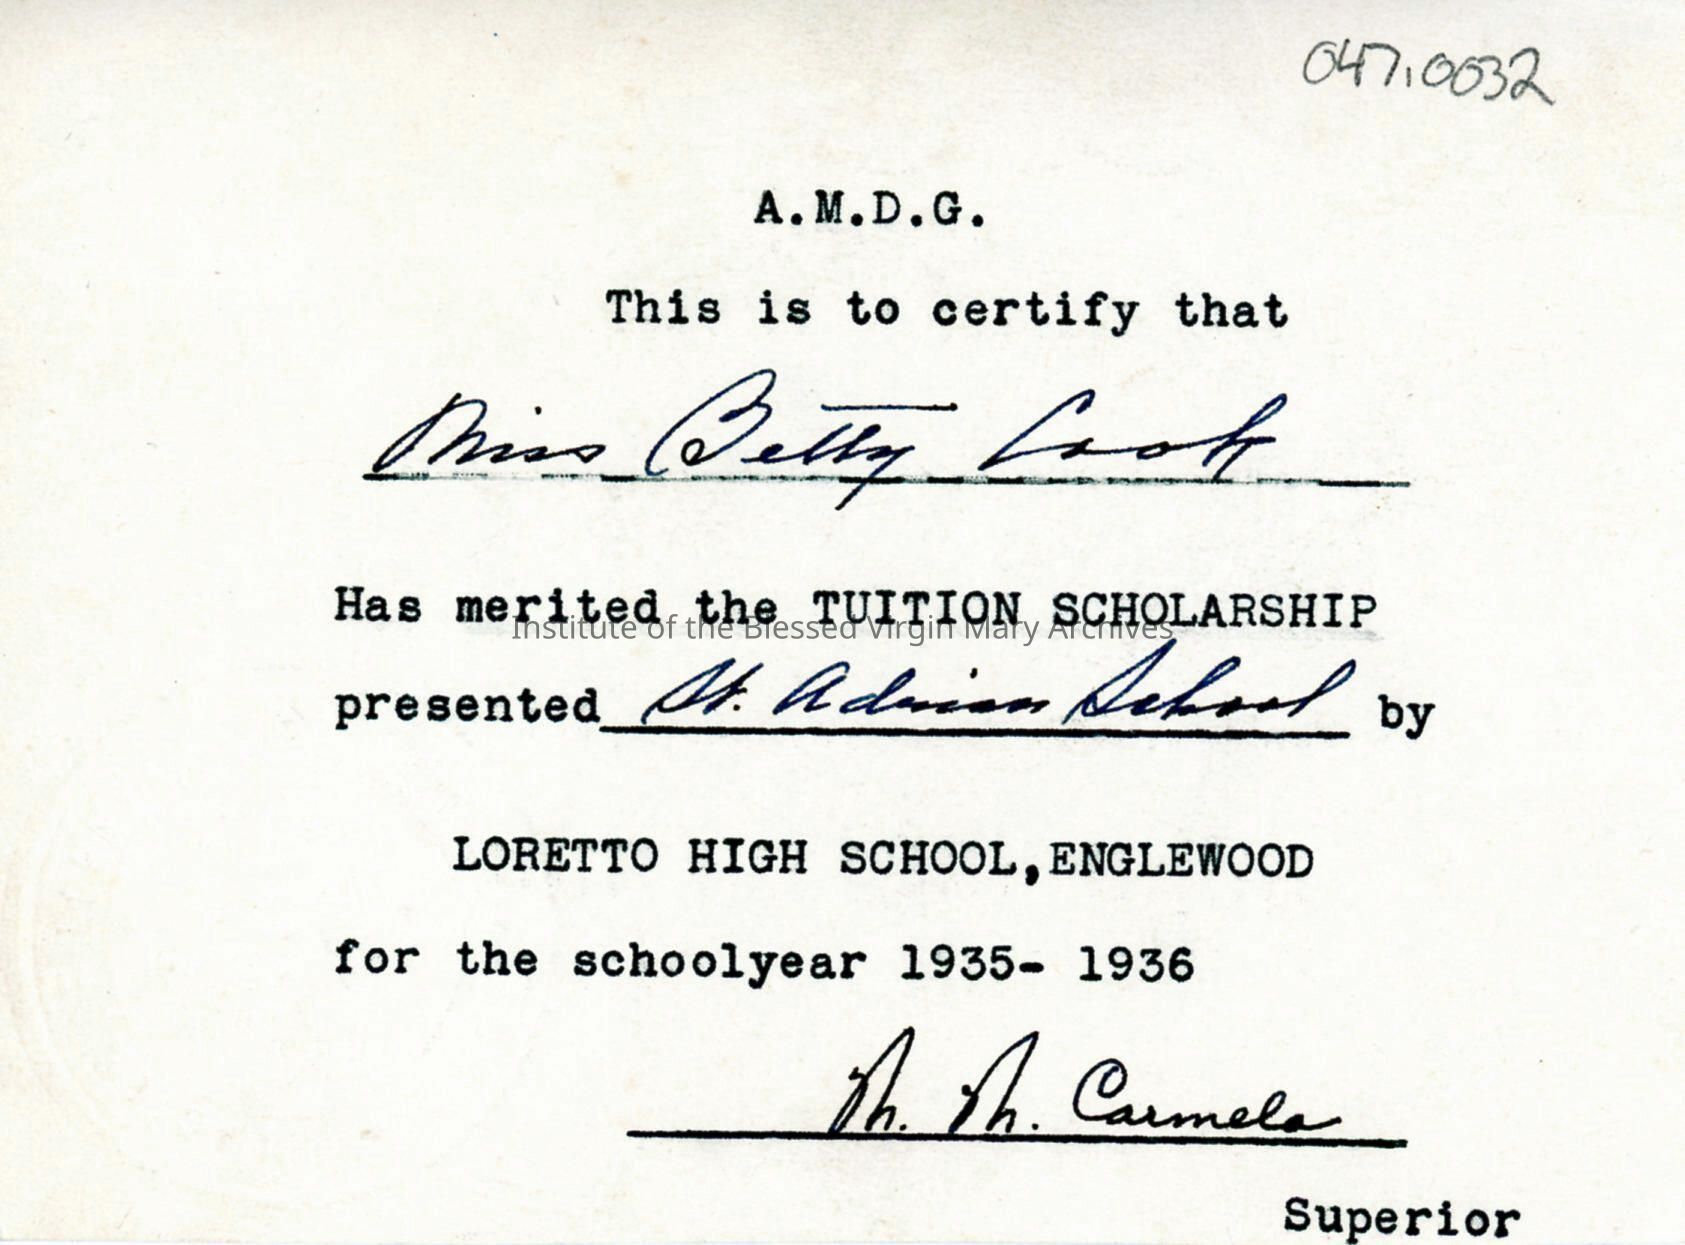 047.0032
A.M.D.G.
This is to certify that
Miss Betty Cook
Has merited the TUITION SCHOLARSHIP
Institute of the Blessed Virgin Mary Archives
presented St. Adrian School by
LORETTO HIGH SCHOOL,ENGLEWOOD
for the schoolyear 1935- 1936
M. M. Carmela
Superior